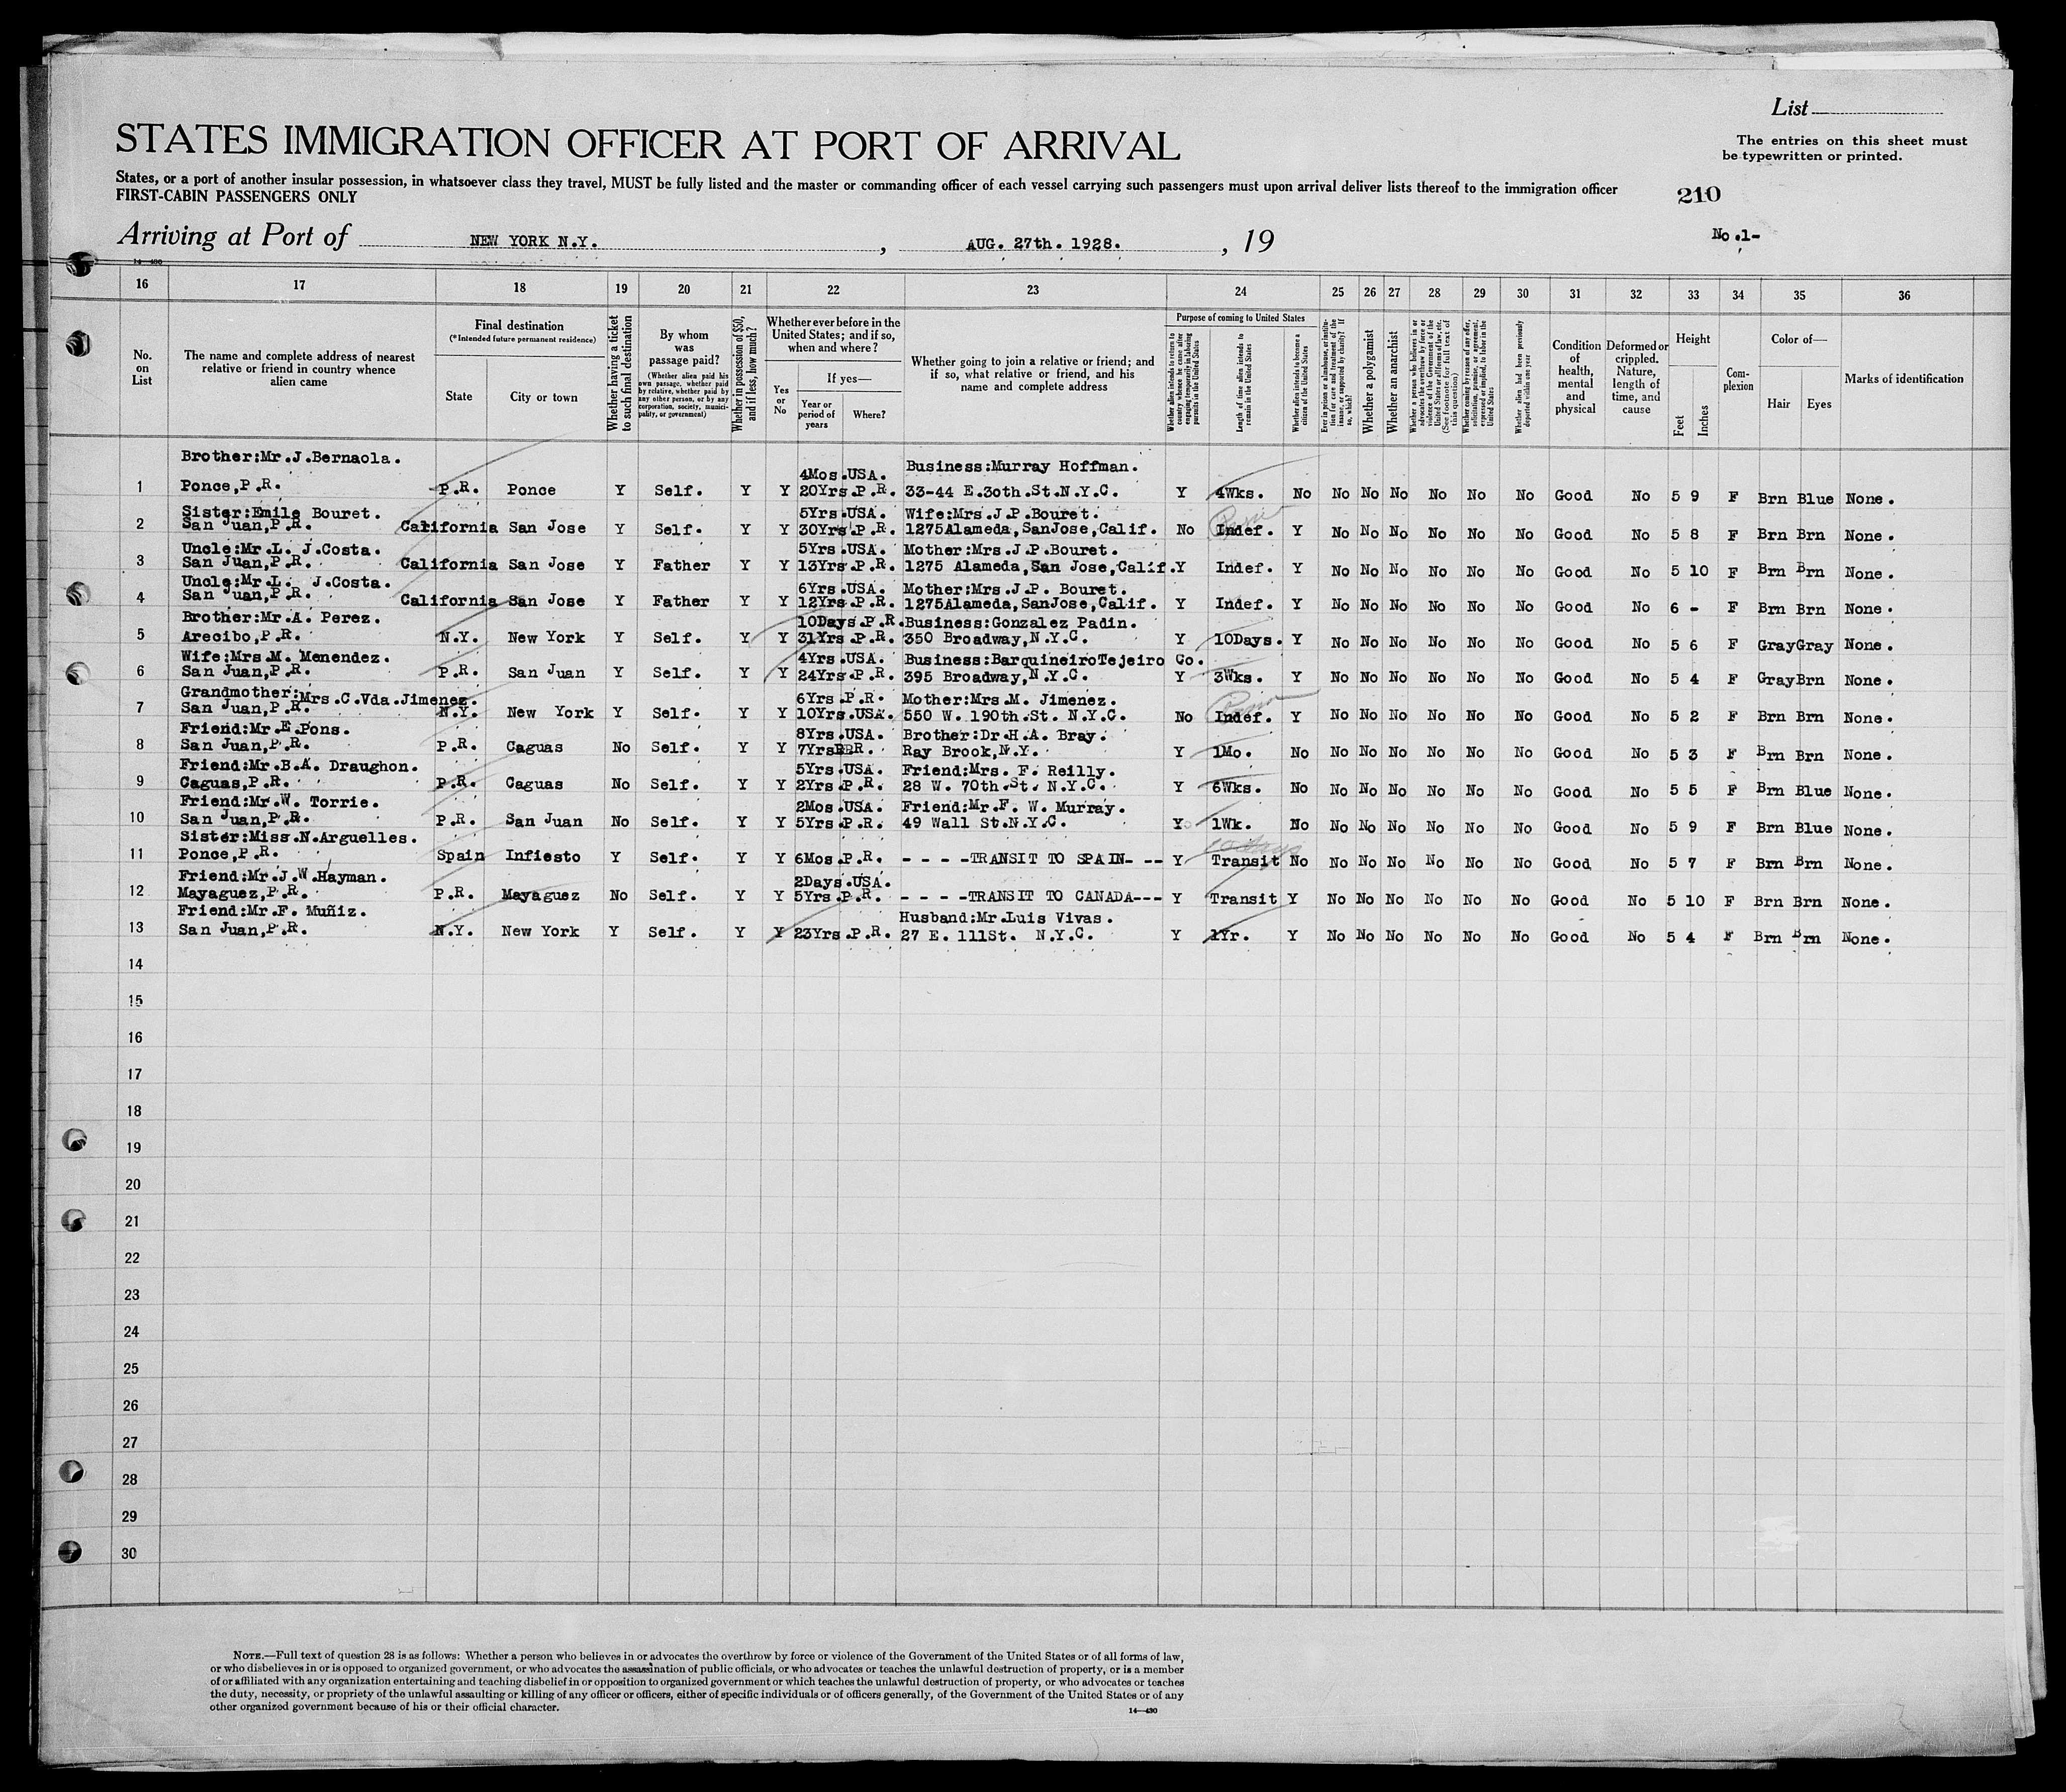 List
STATES IMMIGRATION OFFICER AT PORT OF ARRIVAL
The entries on this sheet must
be typewritten or printed.
States, or a port of another insular possession, in whatsoever class they travel, MUST be fully listed and the master or commanding officer of each vessel carrying such passengers must upon arrival deliver lists thereof to the immigration officer
FIRST-CABIN PASSENGERS ONLY
210
Arriving at Port of NEW YORK N.Y. , AUG. 27th. 1928. , 19
No.1-
14-430
16 17 18 19 20 21 22 23 24 25 26 27 28 29 30 31 32 33 34 35 36
No. on List
The name and complete address of nearest relative or friend in country whence alien came
Final destination
(*Intended future permanent residence)
State
City or town
Whether having a ticket to such final destination
By whom was passage paid?
(Whether alien paid his own passage, whether paid by relative, whether paid by any other person, or by any corporation, society, municipality, or government)
Whether in possession of $50, and if less, how much?
Whether ever before in the United States; and if so, when and where?
Yes or No
If yes—
Year or period of years
Where?
Whether going to join a relative or friend; and if so, what relative or friend, and his name and complete address
Purpose of coming to United States
Whether alien intends to return to country whence he came after engaging temporarily in laboring pursuits in the United States
Length of time alien intends to remain in the United States
Whether alien intends to become a citizen of the United States
Ever in prison or almshouse, or institution for care and treatment of the insane, or supported by charity? If so, which?
Whether a polygamist
Whether an anarchist
Whether a person who believes in or advocates the overthrow by force or violence of the Government of the United States or all forms of law, etc. (See footnote for full text of this question)
Whether coming by reason of any offer, solicitation, promise, or agreement, expressed or implied, to labor in the United States
Whether alien had been previously deported within one year
Condition of health, mental and physical
Deformed or crippled. Nature, length of time, and cause
Height
Feet
Inches
Complexion
Color of—
Hair
Eyes
Marks of identification
Brother:Mr.J.Bernaola. 4Mos.USA. Business:Murray Hoffman.
1 Ponce,P.R. P.R. Ponce Y Self. Y Y 20Yrs.P.R. 33-44 E.3oth.St.N.Y.C. Y 4Wks. No No No No No No No Good No 5 9 F Brn Blue None.
Sister:Emile Bouret. 5Yrs.USA. Wife:Mrs.J.P.Bouret.
2 San Juan,P.R. California San Jose Y Self. Y Y 30Yrs.P.R. 1275Alameda,SanJose,Calif. No Indef. Y No No No No No No Good No 5 8 F Brn Brn None.
Uncle:Mr.L. J.Costa. 5Yrs.USA. Mother:Mrs.J.P.Bouret.
3 San Juan,P.R. California San Jose Y Father Y Y 13Yrs.P.R. 1275 Alameda,San Jose,Calif. Y Indef. Y No No No No No No Good No 5 10 F Brn Brn None.
Uncle:Mr.L. J.Costa. 6Yrs.USA. Mother:Mrs.J.P. Bouret.
4 San Juan,P.R. California San Jose Y Father Y Y 12Yrs.P.R. 1275Alameda,SanJose,Calif. Y Indef. Y No No No No No No Good No 6 - F Brn Brn None.
Brother:Mr.A. Perez. 10Days.P.R. Business:Gonzalez Padin.
5 Arecibo,P.R. N.Y. New York Y Self. Y Y 31Yrs.P.R. 350 Broadway,N.Y.C. Y 10Days. Y No No No No No No Good No 5 6 F Gray Gray None.
Wife:Mrs.M. Menendez. 4Yrs.USA. Business:BarquineiroTejeiro Co.
6 San Juan,P.R. P.R. San Juan Y Self. Y Y 24Yrs.P.R. 395 Broadway,N.Y.C. Y 3Wks. Y No No No No No No Good No 5 4 F Gray Brn None.
Grandmother:Mrs.C.Vda.Jimenez. 6Yrs.P.R. Mother:Mrs.M. Jimenez.
7 San Juan,P.R. N.Y. New York Y Self. Y Y 10Yrs.USA. 550 W. 190th.St. N.Y.C. No Indef. Y No No No No No No Good No 5 2 F Brn Brn None.
Friend:Mr.E.Pons. 8Yrs.USA. Brother:Dr.H.A. Bray.
8 San Juan,P.R. P.R. Caguas No Self. Y Y 7Yrs R. Ray Brook,N.Y. Y 1Mo. No No No No No No No Good No 5 3 F Brn Brn None.
Friend:Mr.B.A. Draughon. 5Yrs.USA. Friend:Mrs. F. Reilly.
9 Caguas,P.R. P.R. Caguas No Self. Y Y 2Yrs.P.R. 28 W. 70th.St. N.Y.C. Y 6Wks. No No No No No No No Good No 5 5 F Brn Blue None.
Friend:Mr.W. Torrie. 2Mos.USA. Friend:Mr.F. W. Murray.
10 San Juan,P.R. P.R. San Juan No Self. Y Y 5Yrs.P.R. 49 Wall St.N.Y.C. Y 1Wk. No No No No No No No Good No 5 9 F Brn Blue None.
Sister:Miss.N.Arguelles. 10 days
11 Ponce,P.R. Spain Infiesto Y Self. Y Y 6Mos.P.R. - - - -TRANSIT TO SPAIN- -- Y Transit No No No No No No No Good No 5 7 F Brn Brn None.
Friend:Mr.J.W.Hayman. 2Days.USA.
12 Mayaguez,P.R. P.R. Mayaguez No Self. Y Y 5Yrs.P.R. - - - -TRANSIT TO CANADA--- Y Transit Y No No No No No No Good No 5 10 F Brn Brn None.
Friend:Mr.F. Muñiz. Husband:Mr.Luis Vivas.
13 San Juan,P.R. N.Y. New York Y Self. Y Y 23Yrs.P.R. 27 E. 111St. N.Y.C. Y 1Yr. Y No No No No No No Good No 5 4 F Brn Brn None.
14
15
16
17
18
19
20
21
22
23
24
25
26
27
28
29
30
NOTE.—Full text of question 28 is as follows: Whether a person who believes in or advocates the overthrow by force or violence of the Government of the United States or of all forms of law,
or who disbelieves in or is opposed to organized government, or who advocates the assassination of public officials, or who advocates or teaches the unlawful destruction of property, or is a member
of or affiliated with any organization entertaining and teaching disbelief in or opposition to organized government or which teaches the unlawful destruction of property, or who advocates or teaches
the duty, necessity, or propriety of the unlawful assaulting or killing of any officer or officers, either of specific individuals or of officers generally, of the Government of the United States or of any
other organized government because of his or their official character.
14-430